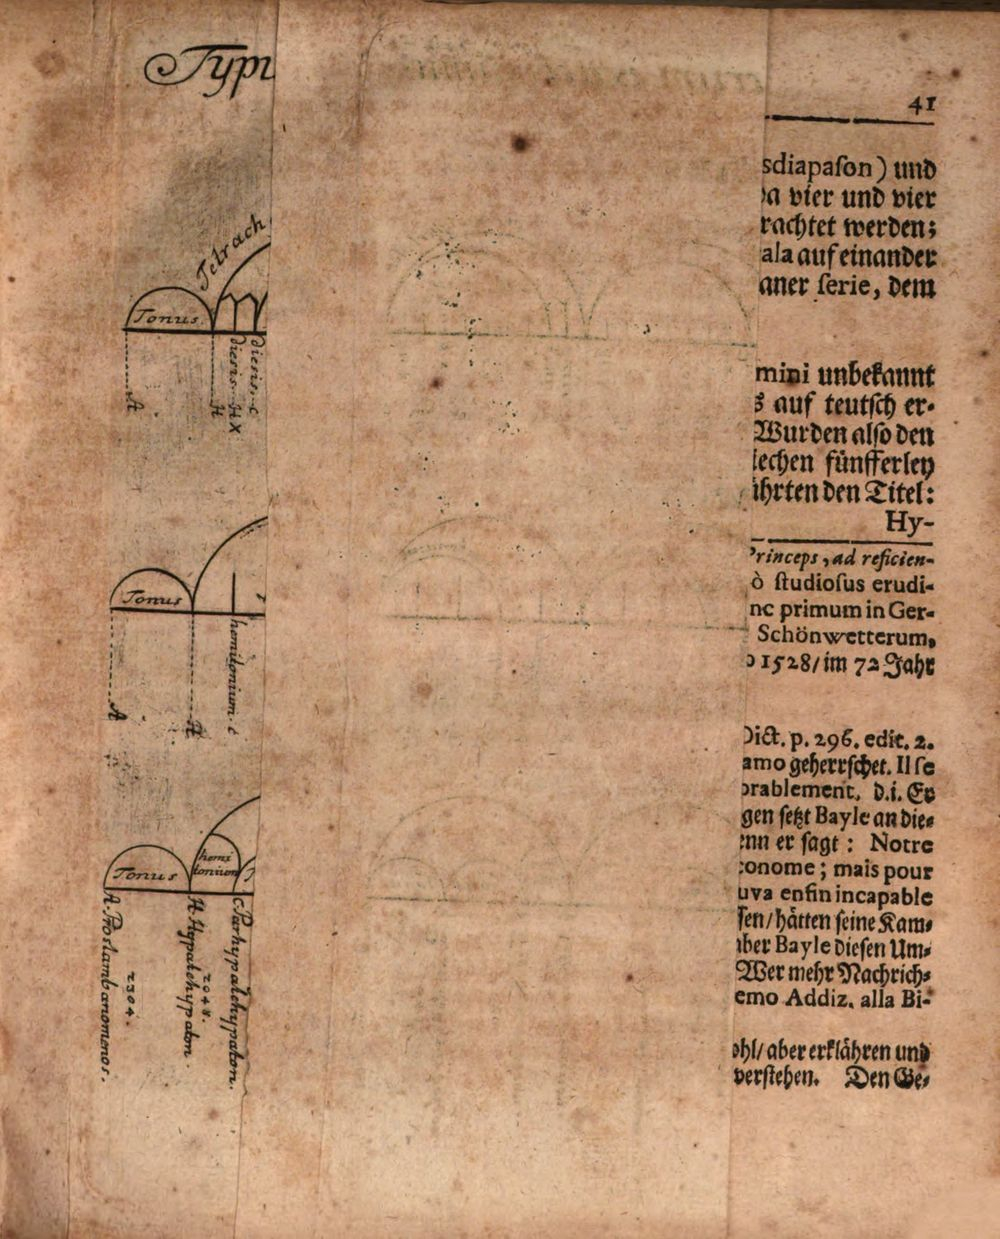 Typi
41
sdiapaſon) und
a vier und vier
rachtet werden;
ala auf einander
aner ſerie, dem
mini unbekannt
s auf teutſch er-
Wurden alſo den
iechen fünfferley
ihrten den Titel:
Hy-
rinceps, ad reficien-
ò ſtudioſus erudi-
nc primum in Ger-
Schönwetterum,
o 1528/ im 72 Jahr
Dict. p. 296. edit. 2.
amo geherrſchet. Il ſe
orablement. d.i. Er
gen ſetzt Bayle an die-
enn er ſagt: Notre
conome; mais pour
uva enfin incapable
ſen/ hätten ſeine Kam-
aber Bayle dieſen Um-
Wer mehr Nachrich-
emo Addiz. alla Bi-
ohl/ aber erklähren und
verſtehen. Den Ge-
Tetrach
Tonus
A
H
dieſis. HX
dieſis. C
Tonus
A
H
hemitonium. C
Tonus
hemi
tonium
A. Proslambanomenos.
2304.
H. Hypatehypaton.
2048.
C. Parhypatehypaton.